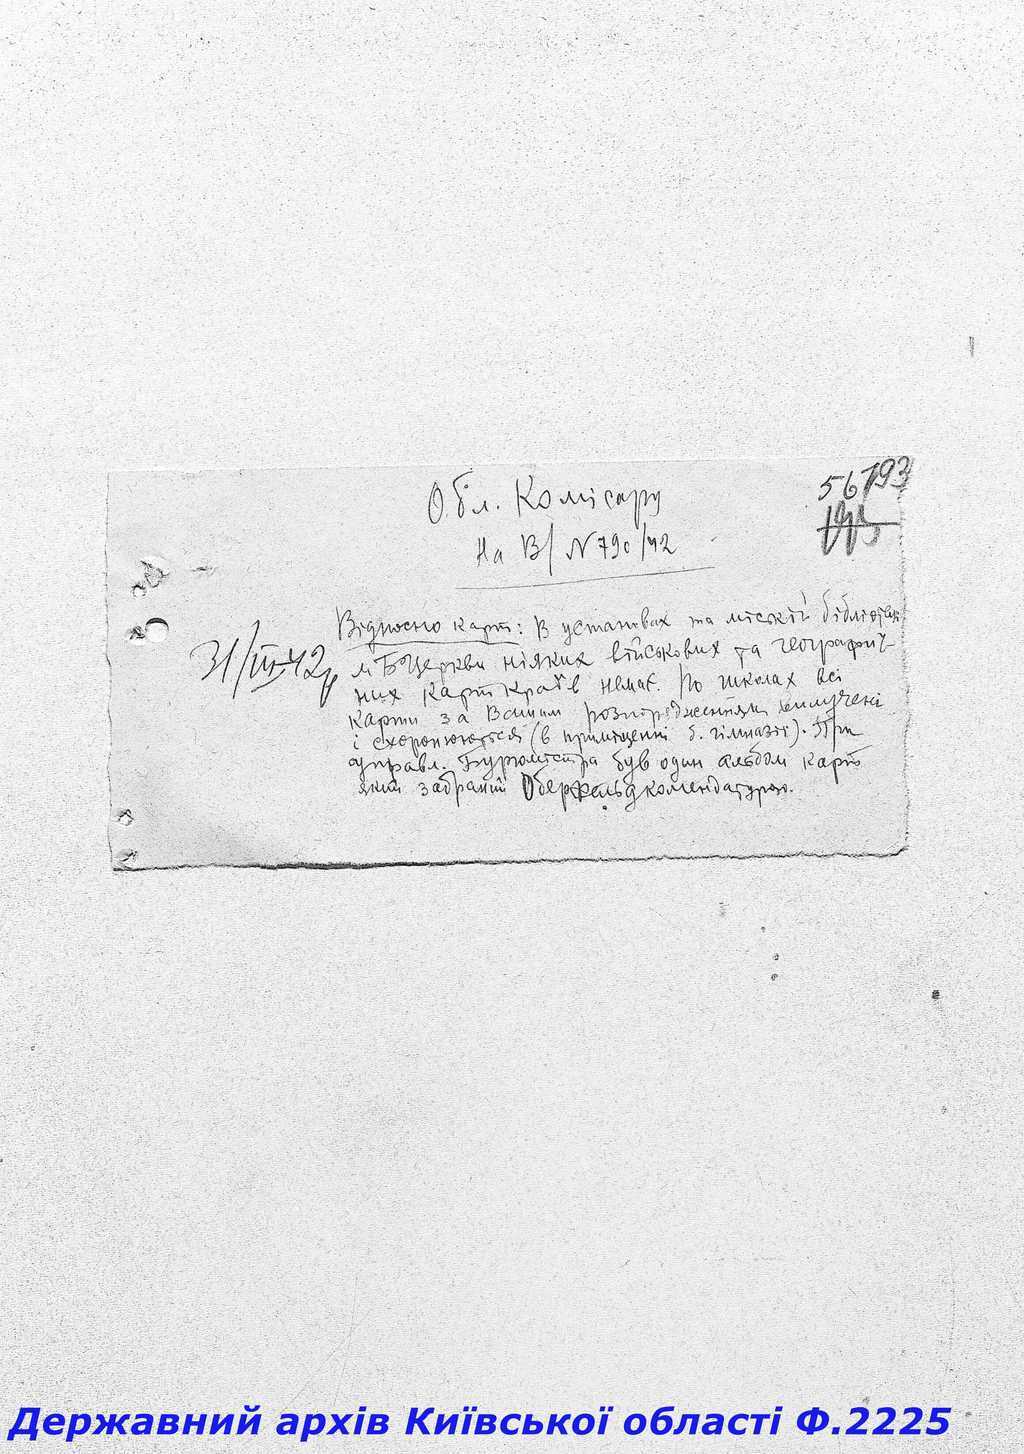 56793
Обл. Комісару
На В/ №79с/42
31/III-42р
Відносно карт: В установах та міській бібліотеці
м БЦеркви ніяких військових та географіч-
них карт Країв немає. По школах всі
карти за Вашим розпорядженням вилучені
і схоронюються (в приміщенні б. гімназії). При
управл. Бурмістра був один альбом карт
який забраний Оберфельдкомендатурою.
Державний архів Київської області Ф.2225